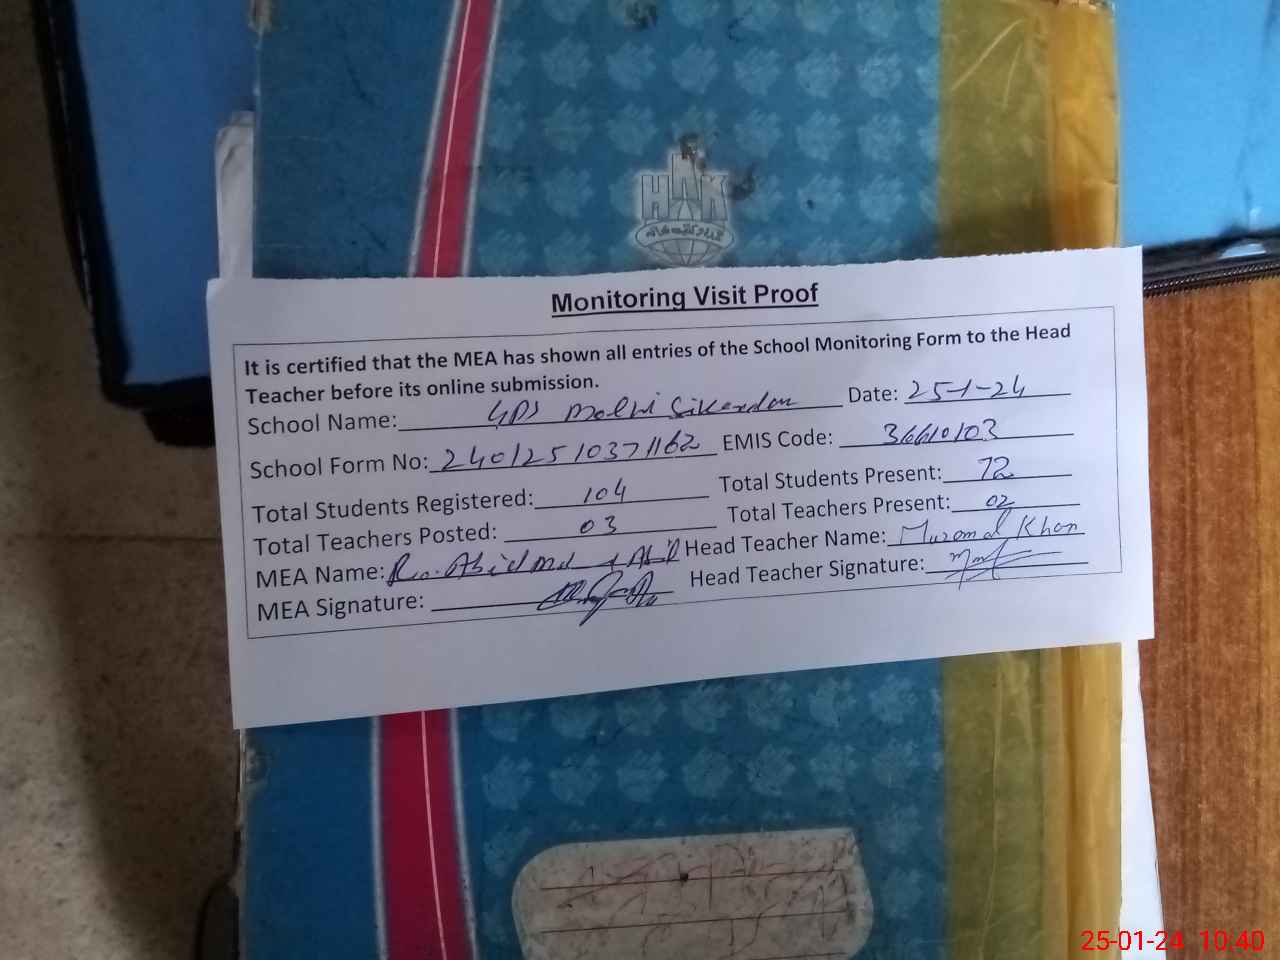 HAK
Monitoring Visit Proof
It is certified that the MEA has shown all entries of the School Monitoring Form to the Head
Teacher before its online submission.
School Name: GPS Molhi Sikandar Date: 25-1-24
School Form No: 24012510371162 EMIS Code: 36610103
Total Students Registered: 104 Total Students Present: 72
Total Teachers Posted: 03 Total Teachers Present: 02
MEA Name: Abid Head Teacher Name: Khan
MEA Signature: Head Teacher Signature:
25-01-24 10:40